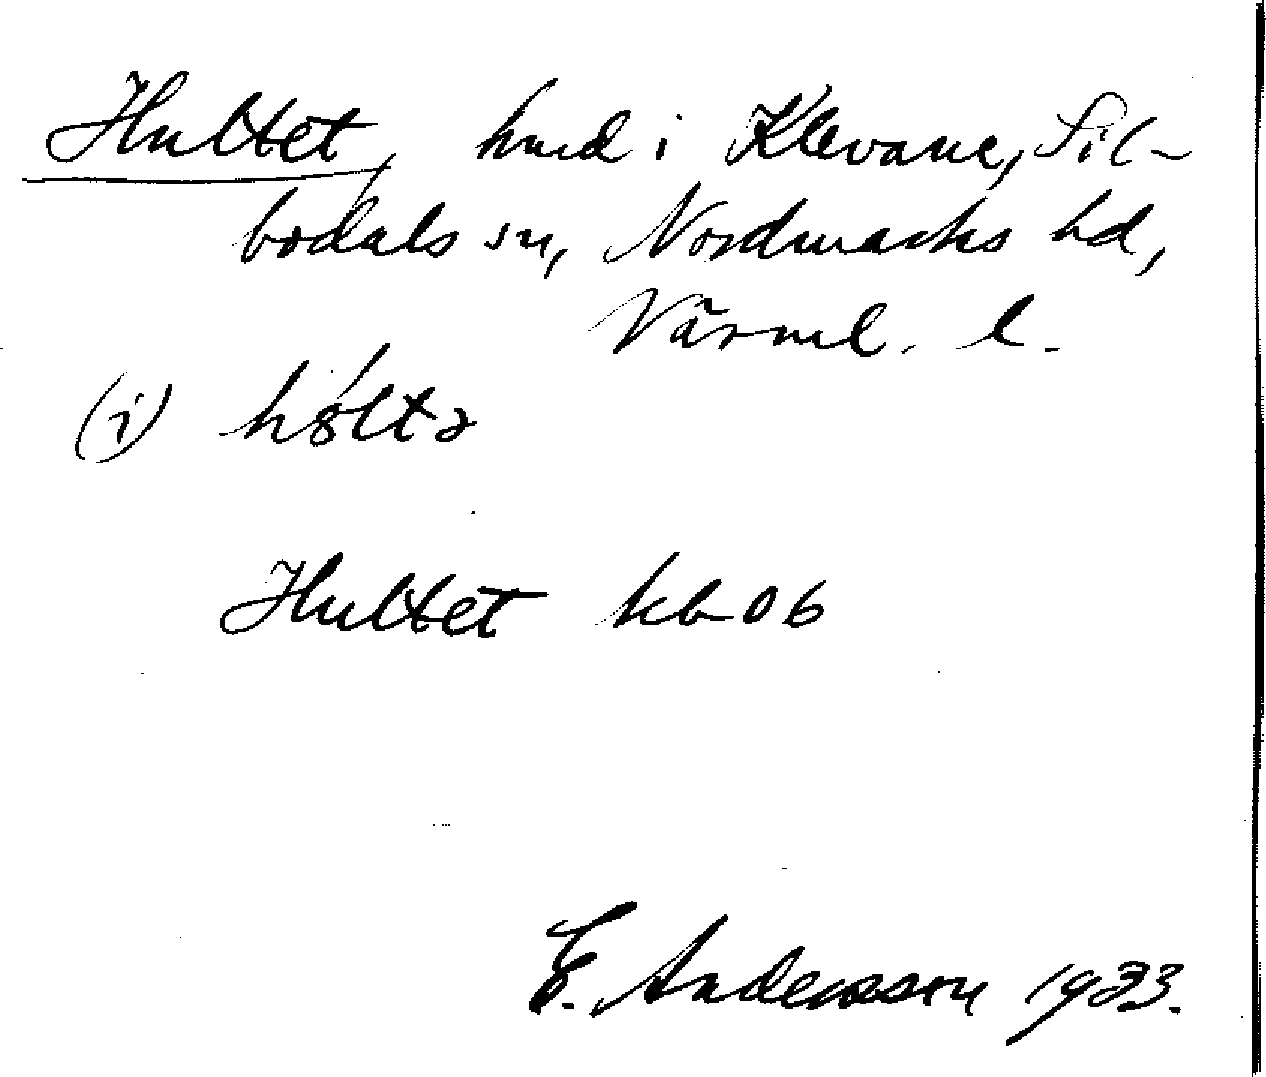 Hultet, hmd i Klevane, Sil-
bodals sn, Nordmarks hd,
Värml. l.
(i) høltə
Hultet kb 06
E. Andersson 1933.